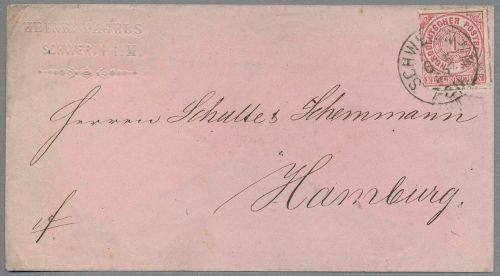 HEINR. PAGELS
SCHWERIN i. M.
NORDDEUTSCHER POSTBEZIRK
SCHWERIN
Herren Schulte & Schemmann
Hamburg.